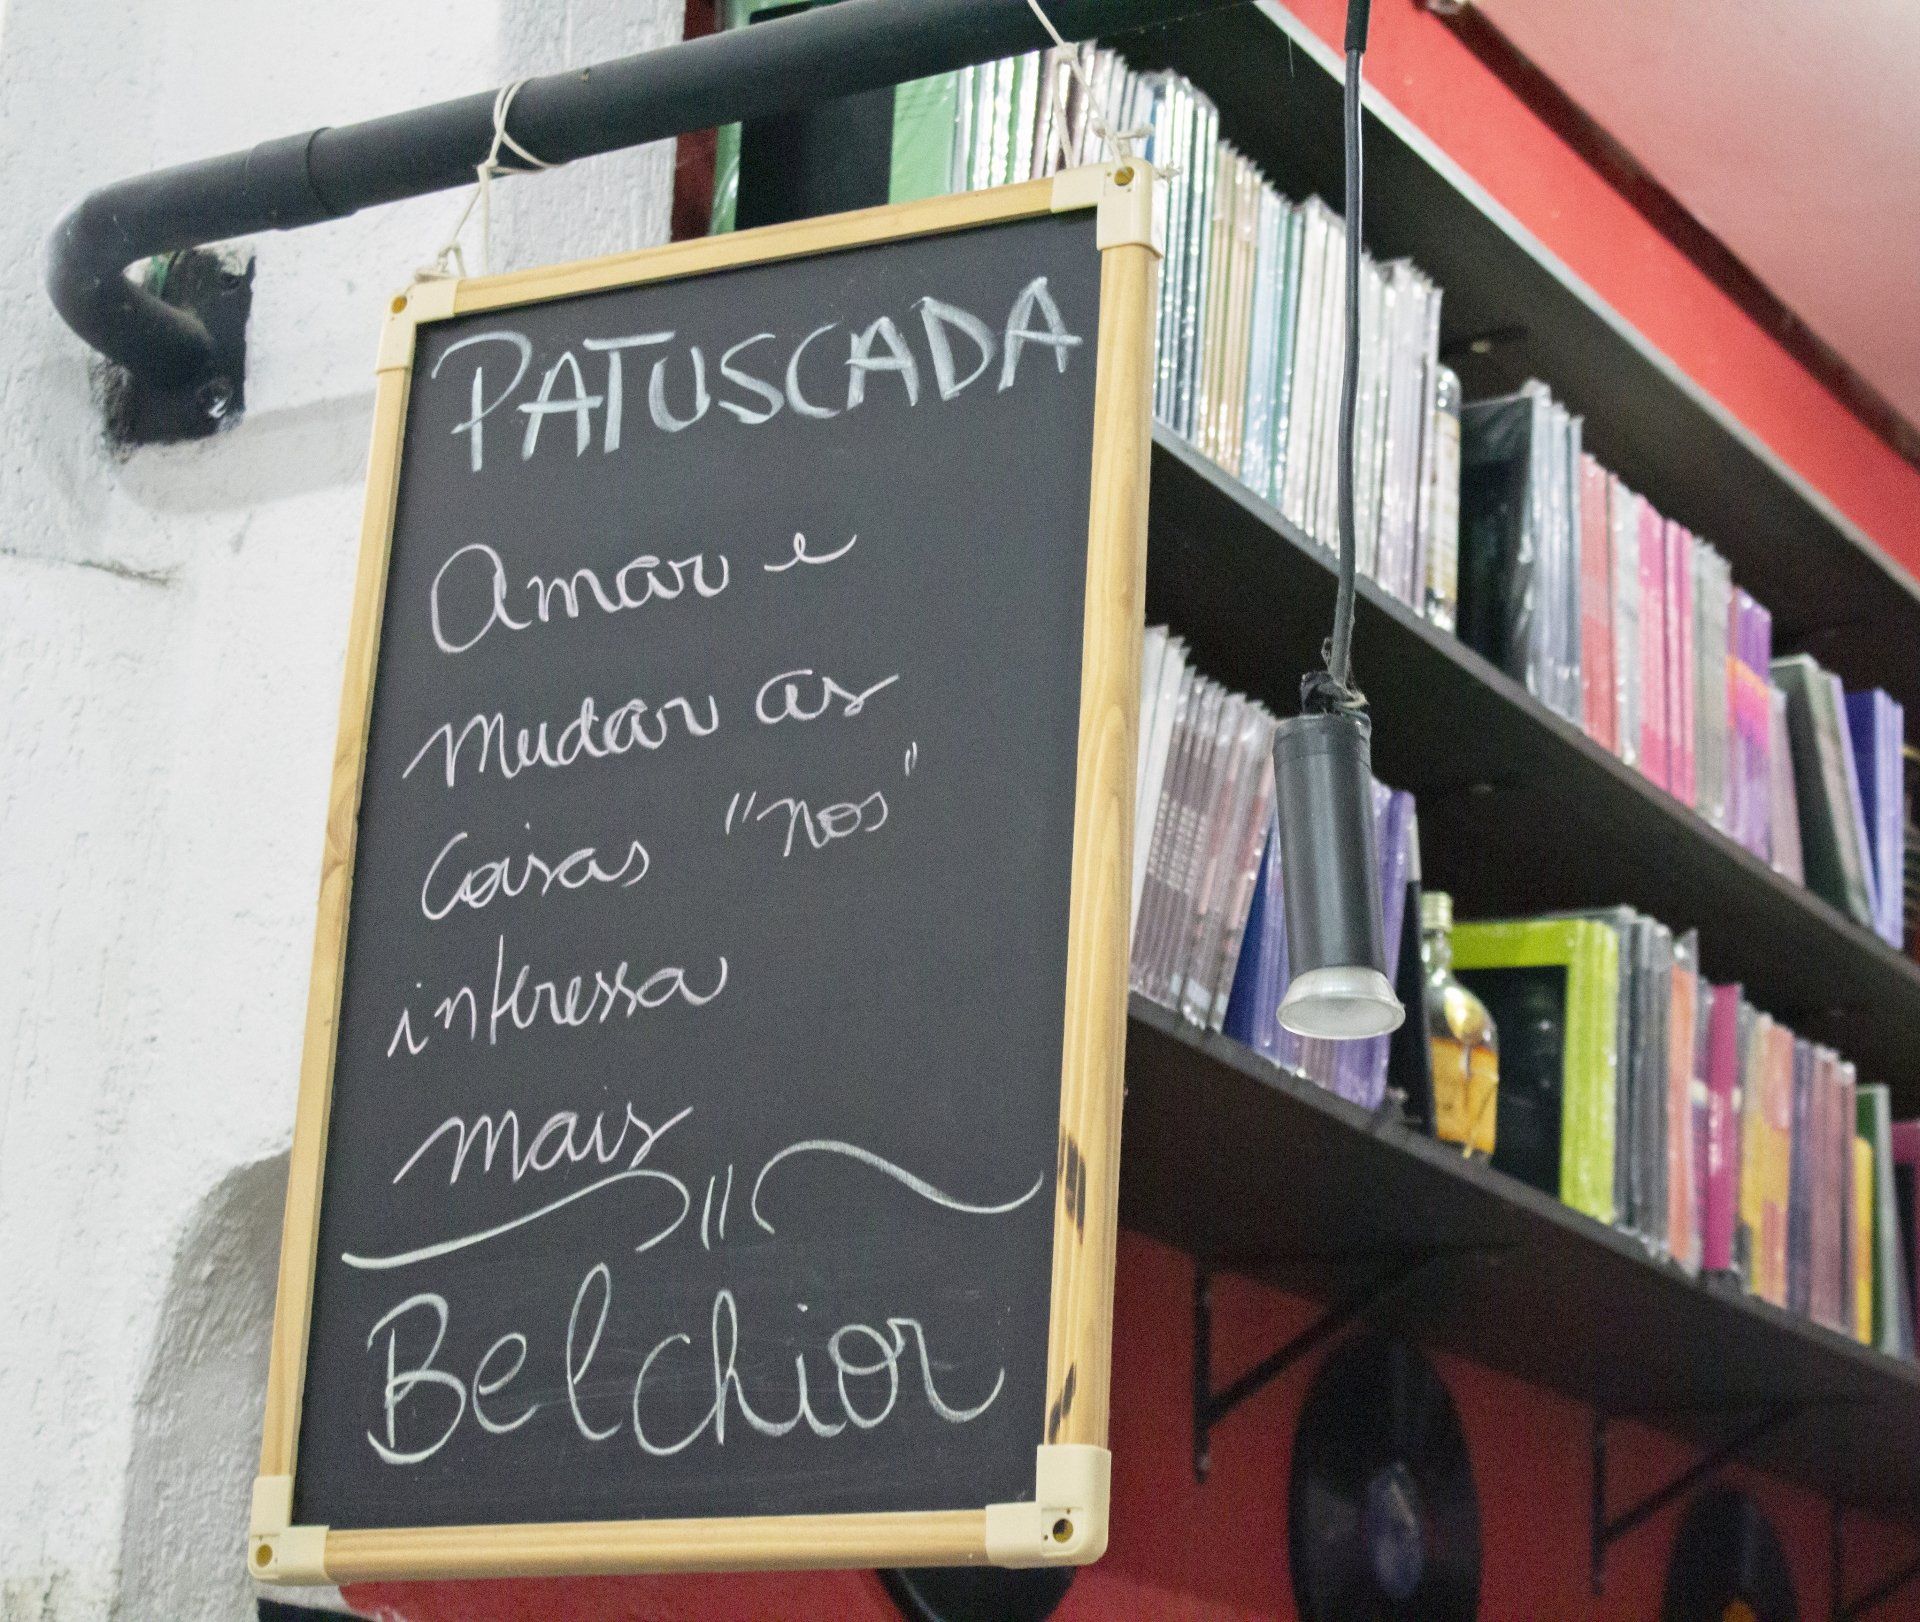 PATUSCADA
Amar e
mudar as
Coisas "nos"
interessa
mais
Belchior